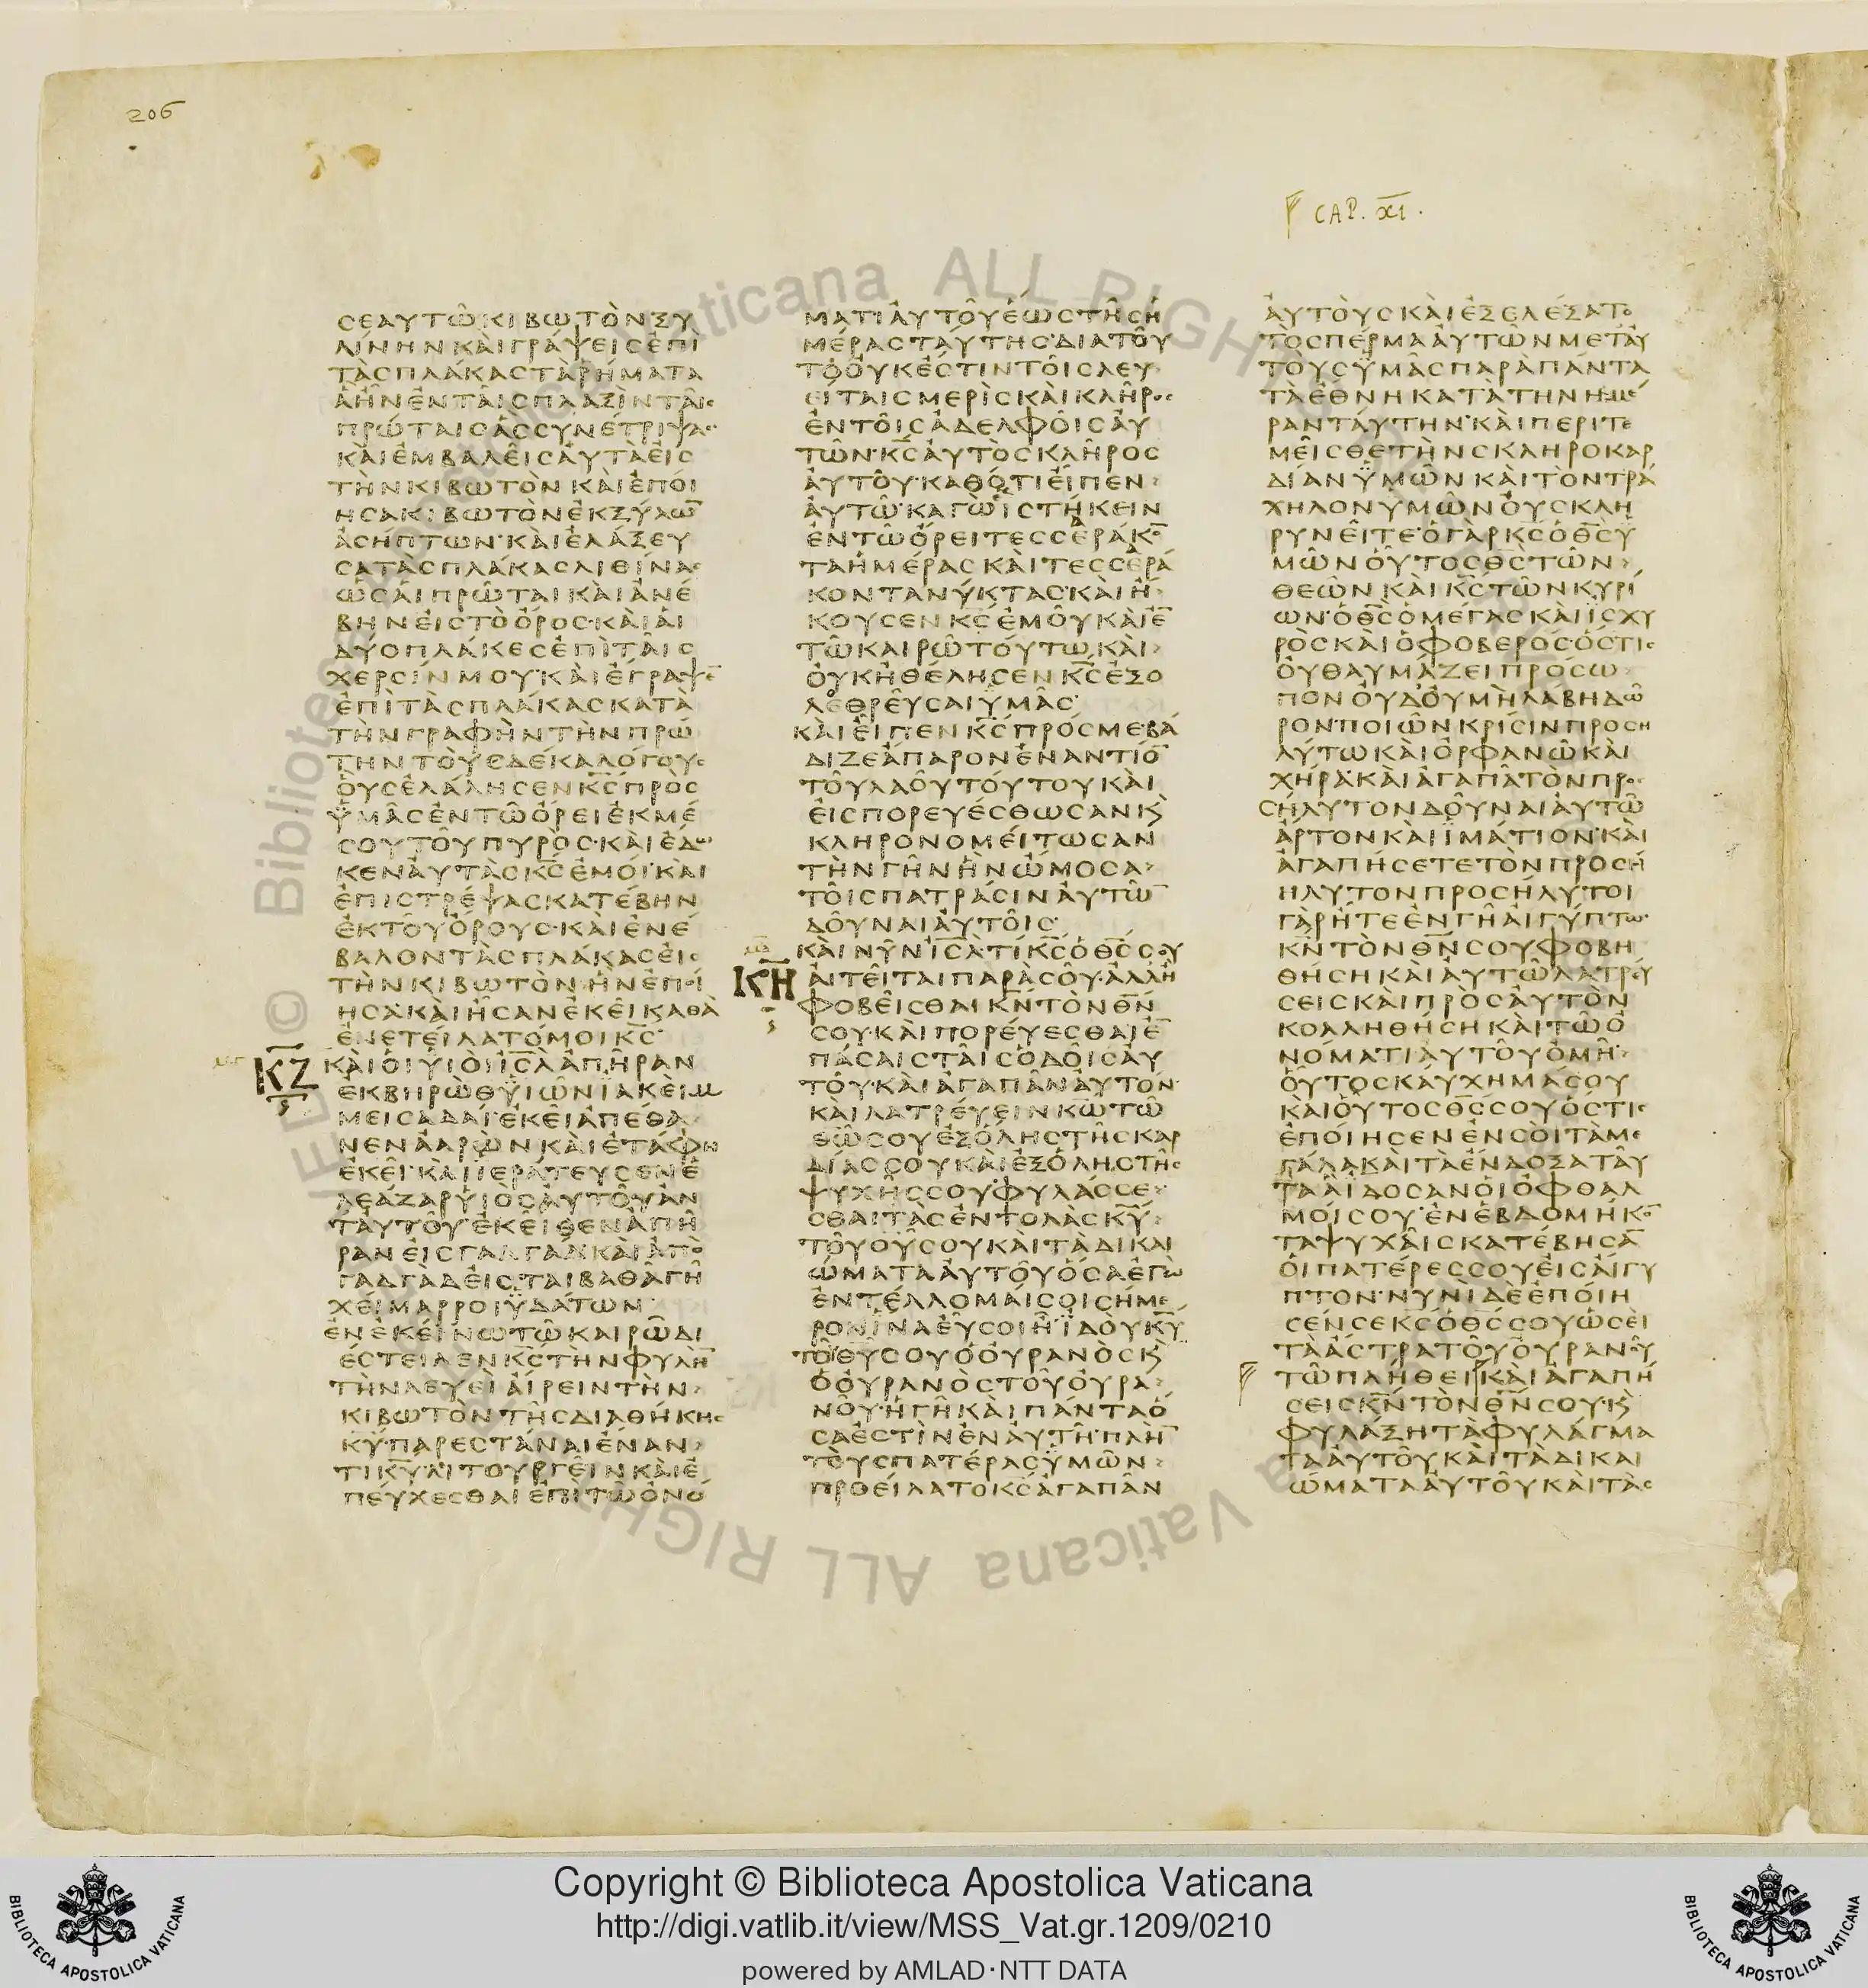 206
CAP. XI.
ϲεαυτῶκιβωτὸνξυ
λίνηνκαὶγράψειϲἐπὶ
τὰϲπλάκαϲτὰρήματα
ἃἦνἐνταῖϲπλαξὶνταῖϲ
πρώταιϲἃϲϲυνέτριψαϲ
καὶἐμβαλεῖϲαὐτὰεἰϲ
τὴνκιβωτόνκαὶἐποί
ηϲακιβωτὸνἐκξύλω̅
ἀϲήπτων·καὶἐλάξευ
ϲατὰϲπλάκαϲλιθίναϲ
ὡϲαἱπρῶταικαὶἀνέ
βηνεἰϲτὸὄροϲ·καὶαἱ
δύοπλάκεϲἐπὶταῖϲ
χερϲίνμου·καὶἔγραψε̅
ἐπὶτὰϲπλάκαϲκατὰ
τὴνγραφὴντὴνπρώ
τηντοὺϲδέκαλόγουϲ
οὓϲἐλάληϲενκ̅ϲ̅πρὸϲ
ὑμᾶϲἐντῶὄρειἐκμέ
ϲουτοῦπυρόϲ·καὶἔδω
κεναὐτὰϲκ̅ϲ̅ἐμοί·καὶ
ἐπιϲτρέψαϲκατέβην
ἐκτοῦὄρουϲ·καὶἐνέ
βαλοντὰϲπλάκαϲεἰϲ
τὴνκιβωτὸνἣνἐποί
ηϲα·καὶἦϲανἐκεῖκαθὰ
ἐνετείλατόμοικ̅ϲ̅·
ΚΖ
καὶοἱυἱοὶι̅ϲ̅λ̅ἀπῆραν
ἐκβηρὼθυἱῶνϊακεὶμ
μειϲαδαί·ἐκεῖἀπέθα
νενἀαρὼνκαὶἐτάφη
ἐκεῖ·καὶἱεράτευϲενἐ
λεαζὰρυἱὸϲαὐτοῦἀν
ταὐτοῦ·ἐκεῖθενἀπῆ
ρανεἰϲγαδγὰδκαὶἀπὸ
γαδγὰδεἰϲταιβαθᾶγῆ
χείμαρροιὑδάτων·
ἐνἐκείνωτῶκαιρῶδι
έϲτειλενκ̅ϲ̅τὴνφυλὴ̅
τὴνλευεὶαἴρειντὴν
κιβωτὸντῆϲδιαθήκηϲ
κ̅υ̅·παρεϲτάναιἔναν
τικ̅υ̅·λιτουργεῖνκαὶἐ
πεύχεϲθαιἐπὶτῶὀνό
ματιαὐτοῦἕωϲτῆϲἡ
μέραϲταύτηϲ·διατοῦ
τοοὐκἔϲτιντοῖϲλευ
είταιϲμερὶϲκαὶκλῆροϲ
ἐντοῖϲἀδελφοῖϲαὐ
τῶν·κ̅ϲ̅αὐτὸϲκλῆροϲ
αὐτοῦ·καθότιεἶπεν
αὐτῶ·καγὼἱϲτήκειν
ἐντῶὄρειτεϲϲεράκο̅
ταἡμέραϲκαὶτεϲϲερά
κοντανύκταϲ·καὶἤ
κουϲενκ̅ϲ̅ἐμοῦκαὶἐ̅
τῶκαιρῶτούτω·καὶ
οὐκἠθέληϲενκ̅ϲ̅ἐξο
λεθρεῦϲαιὑμᾶϲ·
καὶεἶπενκ̅ϲ̅πρόϲμεβά
διζεἄπαρονἐναντίο̅
τοῦλαοῦτούτουκαὶ
εἰϲπορευέϲθωϲανκ̀
κληρονομείτωϲαν
τὴνγῆνἣνὤμοϲα
τοῖϲπατράϲιναὐτῶ̅
δοῦναιαὐτοῖϲ·
ΚΗ
καὶνῦνι̅ϲ̅λ̅τίκ̅ϲ̅ὁθ̅ϲ̅ϲου
αἰτεῖταιπαρὰϲοῦ·ἀλλἢ
φοβεῖϲθαικ̅ν̅τὸνθ̅ν̅
ϲου·καὶπορεύεϲθαιἐ̅
πάϲαιϲταῖϲὁδοῖϲαὐ
τοῦ·καὶἀγαπᾶναὐτόν·
καὶλατρεύεινκ̅ω̅τῶ
θ̅ω̅ϲουἐξὅληϲτῆϲκαρ
δίαϲϲουκαὶἐξὅληϲτῆϲ
ψυχῆϲϲου·φυλάϲϲε
ϲθαιτὰϲἐντολὰϲκ̅υ̅
τοῦθ̅υ̅ϲουκαὶτὰδικαι
ώματααὐτοῦὅϲαἐγὼ
ἐντέλλομαίϲοιϲήμε
ρονἵναεὖϲοιἦ·ἰδοὺκ̅υ̅
τοῦθ̅υ̅ϲουὁοὐρανὸϲκ̀
ὁοὐρανὸϲτοῦοὐρα
νοῦ·ἡγῆκαὶπάνταὅ
ϲαἐϲτὶνἐναὐτῆ·πλὴ̅
τοὺϲπατέραϲὑμῶν
προείλατοκ̅ϲ̅ἀγαπᾶν
αὐτοὺϲκαὶἐξελέξατο
τὸϲπέρμααὐτῶνμεταὐ
τοὺϲὑμᾶϲπαρὰπάντα
τὰἔθνηκατὰτὴνἡμέ
ρανταύτην·καὶπεριτε
μεῖϲθετὴνϲκληροκαρ
δίανὑμῶνκαὶτὸντρά
χηλονὑμῶνοὐϲκλη
ρυνεῖτε·ὁγὰρκ̅ϲ̅ὁθ̅ϲ̅ὑ
μῶνοὗτοϲθ̅ϲ̅τῶν
θεῶνκαὶκ̅ϲ̅τῶνκυρί
ων·ὁθ̅ϲ̅ὁμέγαϲκαὶἰϲχυ
ρὸϲκαὶὁφοβερόϲ·ὅϲτιϲ
οὐθαυμάζειπρόϲω
πονοὐδοὐμὴλάβηδῶ
ρον·ποιῶνκρίϲινπροϲη
λύτωκαὶὀρφανῶκαὶ
χήρα·καὶἀγαπᾶτὸνπρο
ϲήλυτονδοῦναιαὐτῶ
ἄρτονκαὶἱμάτιον·καὶ
ἀγαπήϲετετὸνπροϲή
ηλυτονπροϲήλυτοι
γὰρἦτεἐνγῆαἰγύπτω·
κ̅ν̅τὸνθ̅ν̅ϲουφοβη
θήϲηκαὶαὐτῶλατρεύ
ϲειϲκαὶπρὸϲαὐτὸν
κολληθήϲηκαὶτῶὀ
νόματιαὐτοῦὀμῆ·
οὗτοϲκαύχημάϲου
καὶοὗτοϲθ̅ϲ̅ϲουὅϲτιϲ
ἐποίηϲενἐνϲοὶτὰμε
γάλακαὶτὰἔνδοξαταῦ
ταἃἴδοϲανοἱὀφθαλ
μοίϲου·ἐνἑβδομήκο̅
ταψυχαῖϲκατέβηϲα̅
οἱπατέρεϲϲουεἰϲαἴγυ
πτον·νυνὶδὲἐποίη
ϲένϲεκ̅ϲ̅ὁθ̅ϲ̅ϲουὡϲεὶ
τὰἄϲτρατοῦοὐρανοῦ
τῶπλήθεικαὶἀγαπή
ϲειϲκ̅ν̅τὸνθ̅ν̅ϲου·κ̀
φυλάξητὰφυλάγμα
τααὐτοῦκαὶτὰδικαι
ώματααὐτοῦκαὶτὰϲ
Copyright © Biblioteca Apostolica Vaticana
http://digi.vatlib.it/view/MSS_Vat.gr.1209/0210
powered by AMLAD·NTT DATA
BIBLIOTECA APOSTOLICA VATICANA
BIBLIOTECA APOSTOLICA VATICANA